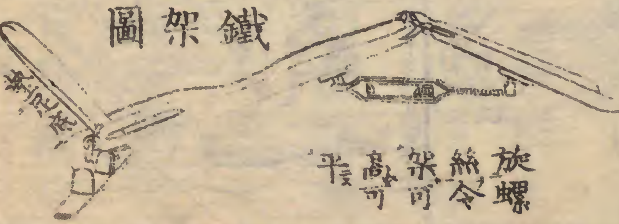 鐵架圖
旋螺
絲令
架可
高可
平